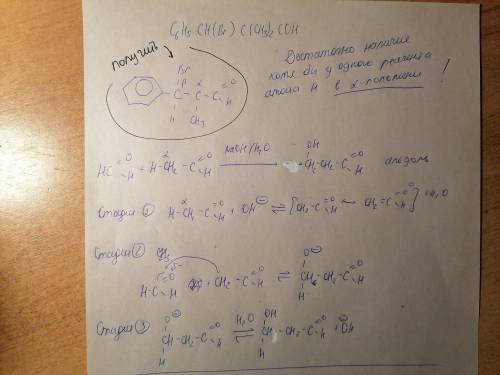 C6H5 CH(Br) C(CH3)2 COH
получить
Достаточно наличие
хотя бы у одного реагента
атома H в α-положении!
Br
β α O
C – C – C
H
H CH3
OH
HC=O H + H-CH2-C=O H NaOH/H2O → CH2-CH2-C=O H альдоль
Стадия ① H-CH2-C=O H + OH⊖ ⇌ [CH2-C=O H ↔ CH2=C-O H] + H2O
Стадия ②
H-C=O H + CH2-C=O H ⇌ CH-CH2-C=O H
Стадия ③
O⊖ OH
CH-CH2-C=O H H2O ⇌ CH-CH2-C=O H + OH⊖
H H